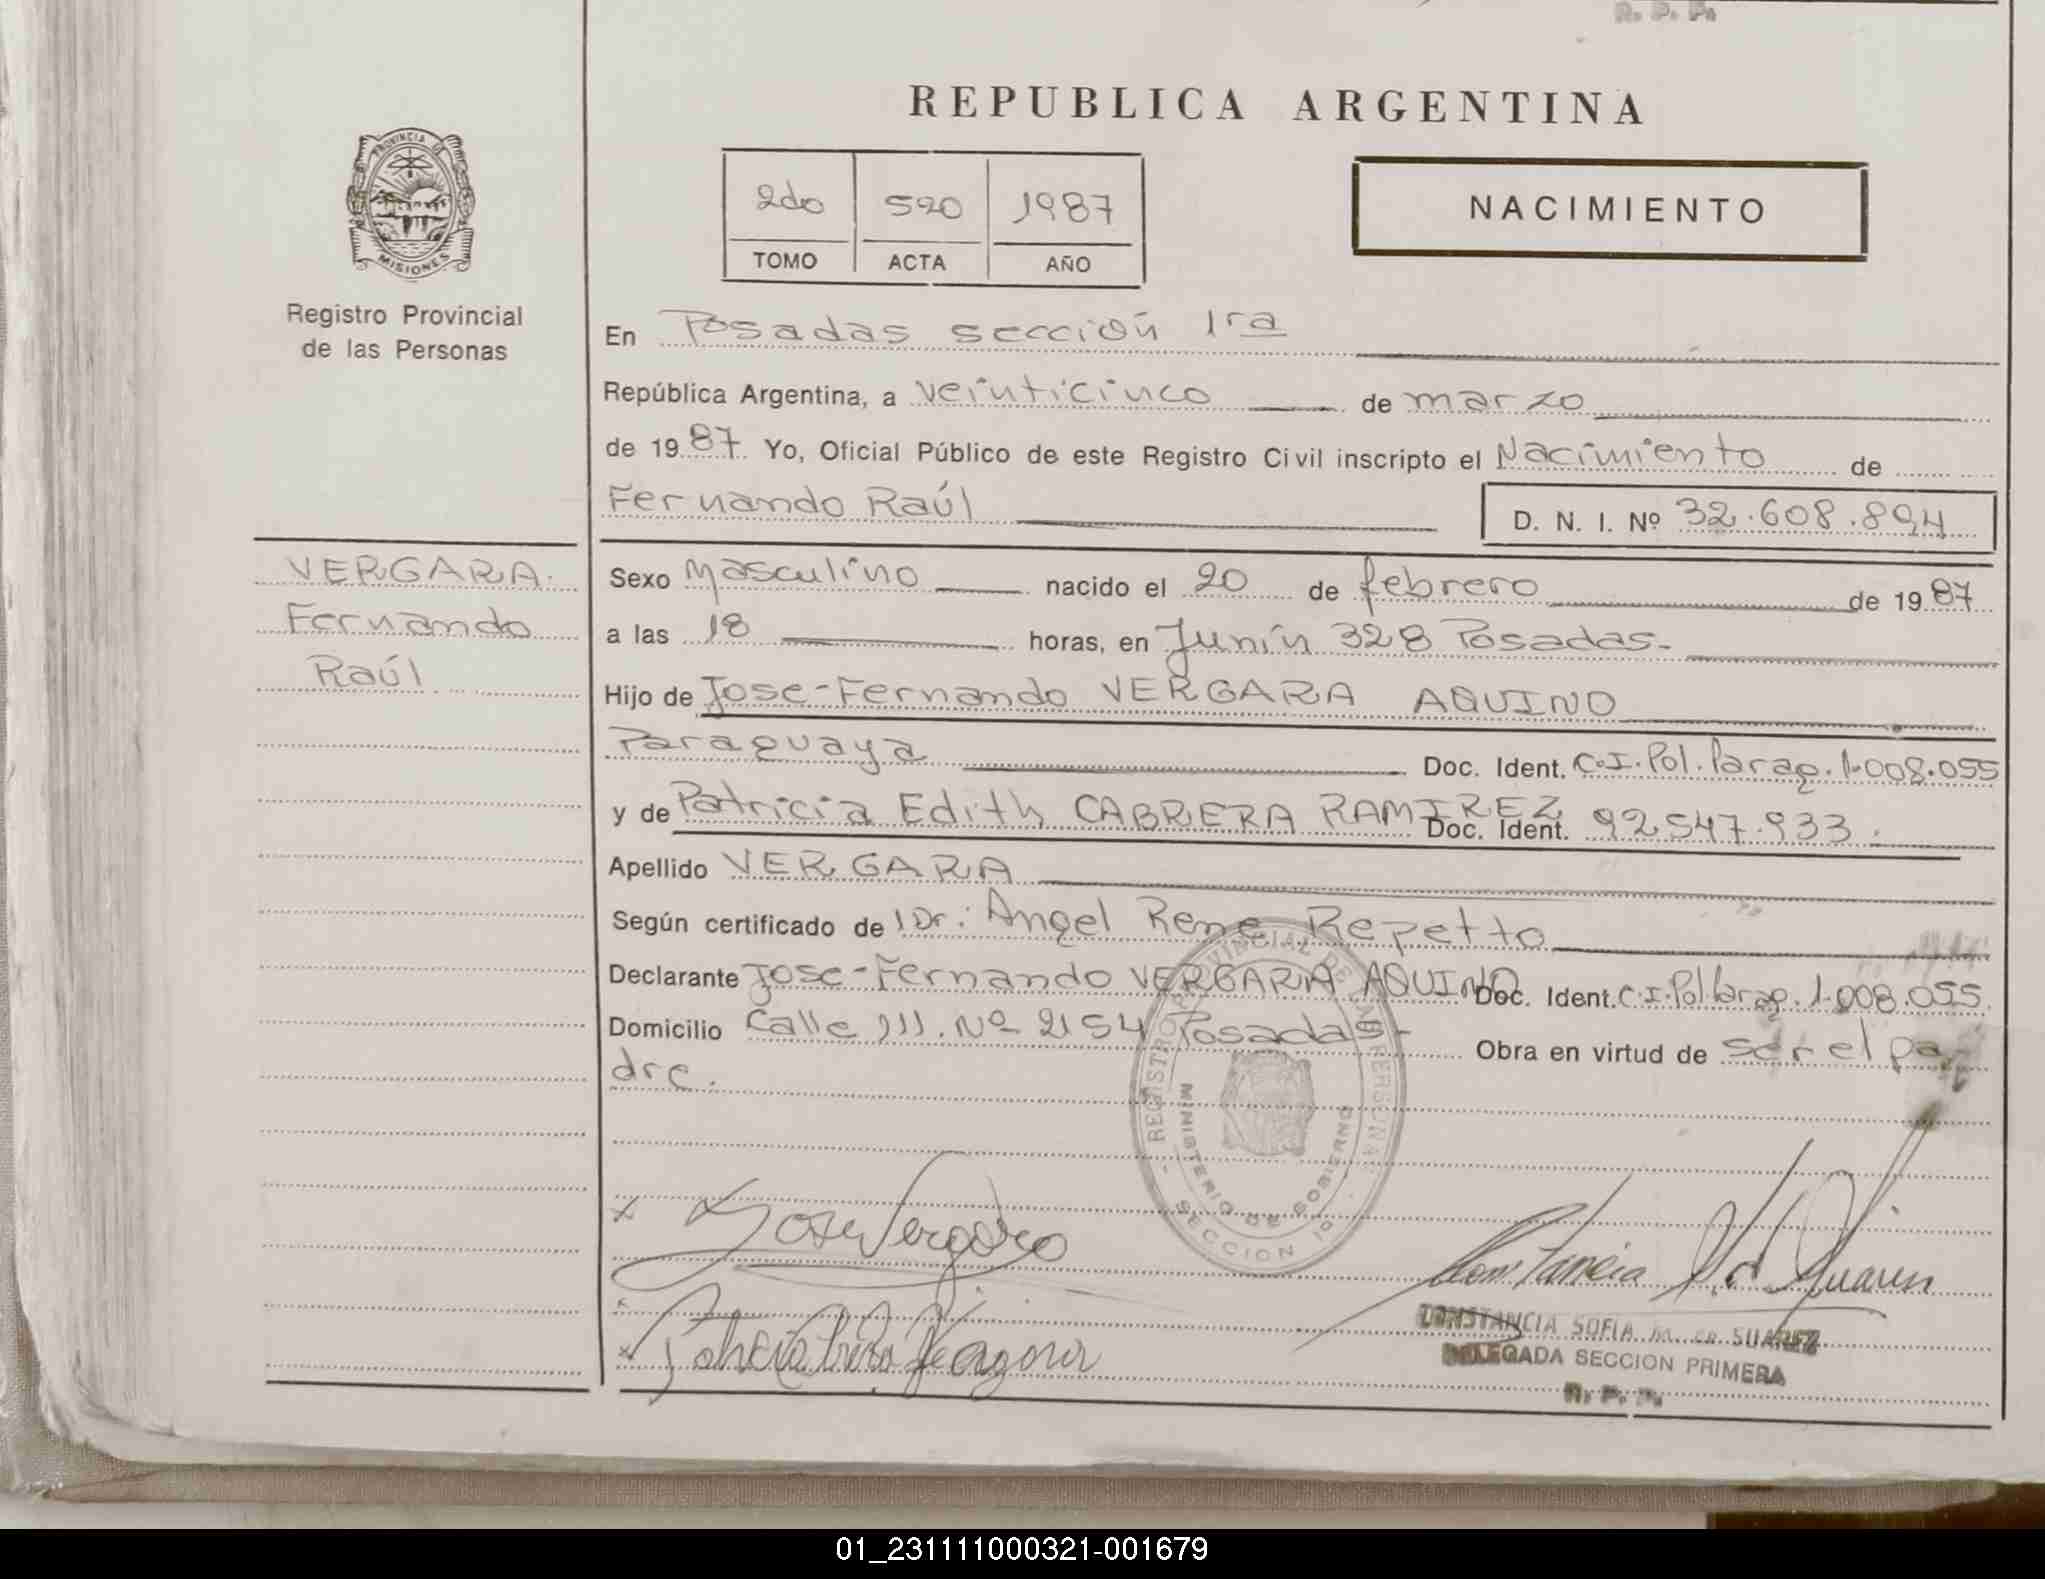 R. P. P.
REPUBLICA ARGENTINA
PROVINCIA DE
MISIONES
Registro Provincial
de las Personas
2do 520 1987
TOMO ACTA AÑO
NACIMIENTO
En Posadas sección 1ra
República Argentina, a veinticinco de marzo
de 1987 Yo, Oficial Público de este Registro Civil inscripto el Nacimiento de
Fernando Raúl D. N. I. Nº 32.608.894
VERGARA
Fernando
Raúl
Sexo Masculino nacido el 20 de febrero de 1987
a las 18 horas, en Junín 328 Posadas-
Hijo de Jose-Fernando VERGARA AQUINO
Paraguaya Doc. Ident. C.I.Pol.Parag.1.008.055
y de Patricia Edith CABRERA RAMIREZ Doc. Ident. 92547.933.
Apellido VERGARA
Según certificado de Dr: Angel Rene Repetto
Declarante Jose-Fernando VERGARA AQUINO Doc. Ident. C.I.Pol.Parag.1.008.055
Domicilio Calle 111. Nº 2154 Posadas- Obra en virtud de ser el pa
dre.
REGISTRO PROVINCIAL DE LAS PERSONAS
MINISTERIO DE GOBIERNO
SECCION 1º
x Jose Vergara
x Patricia Cabrera de Vergara
CONSTANCIA SOFIA M. de SUAREZ
DELEGADA SECCION PRIMERA
R. P. P.
01_231111000321-001679